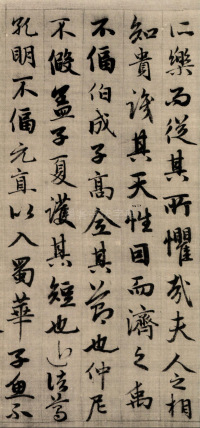 所樂而從其所懼哉夫人之相
知貴識其天性因而濟之禹
不偪伯成子高全其節也仲尼
不假蓋子夏護其短也近諸葛
孔明不偪元直以入蜀華子魚不